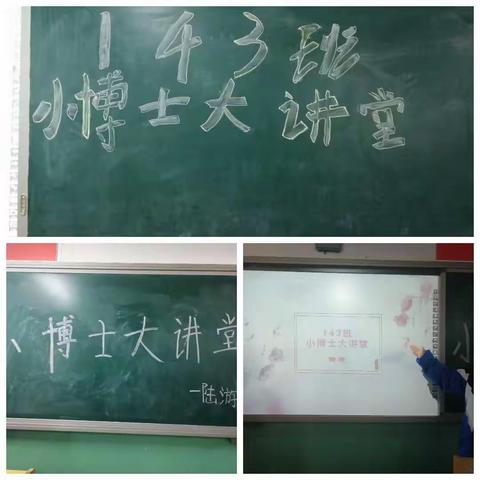 143班
小博士大讲堂
小博士大讲堂
—陆游
143班
小博士大讲堂